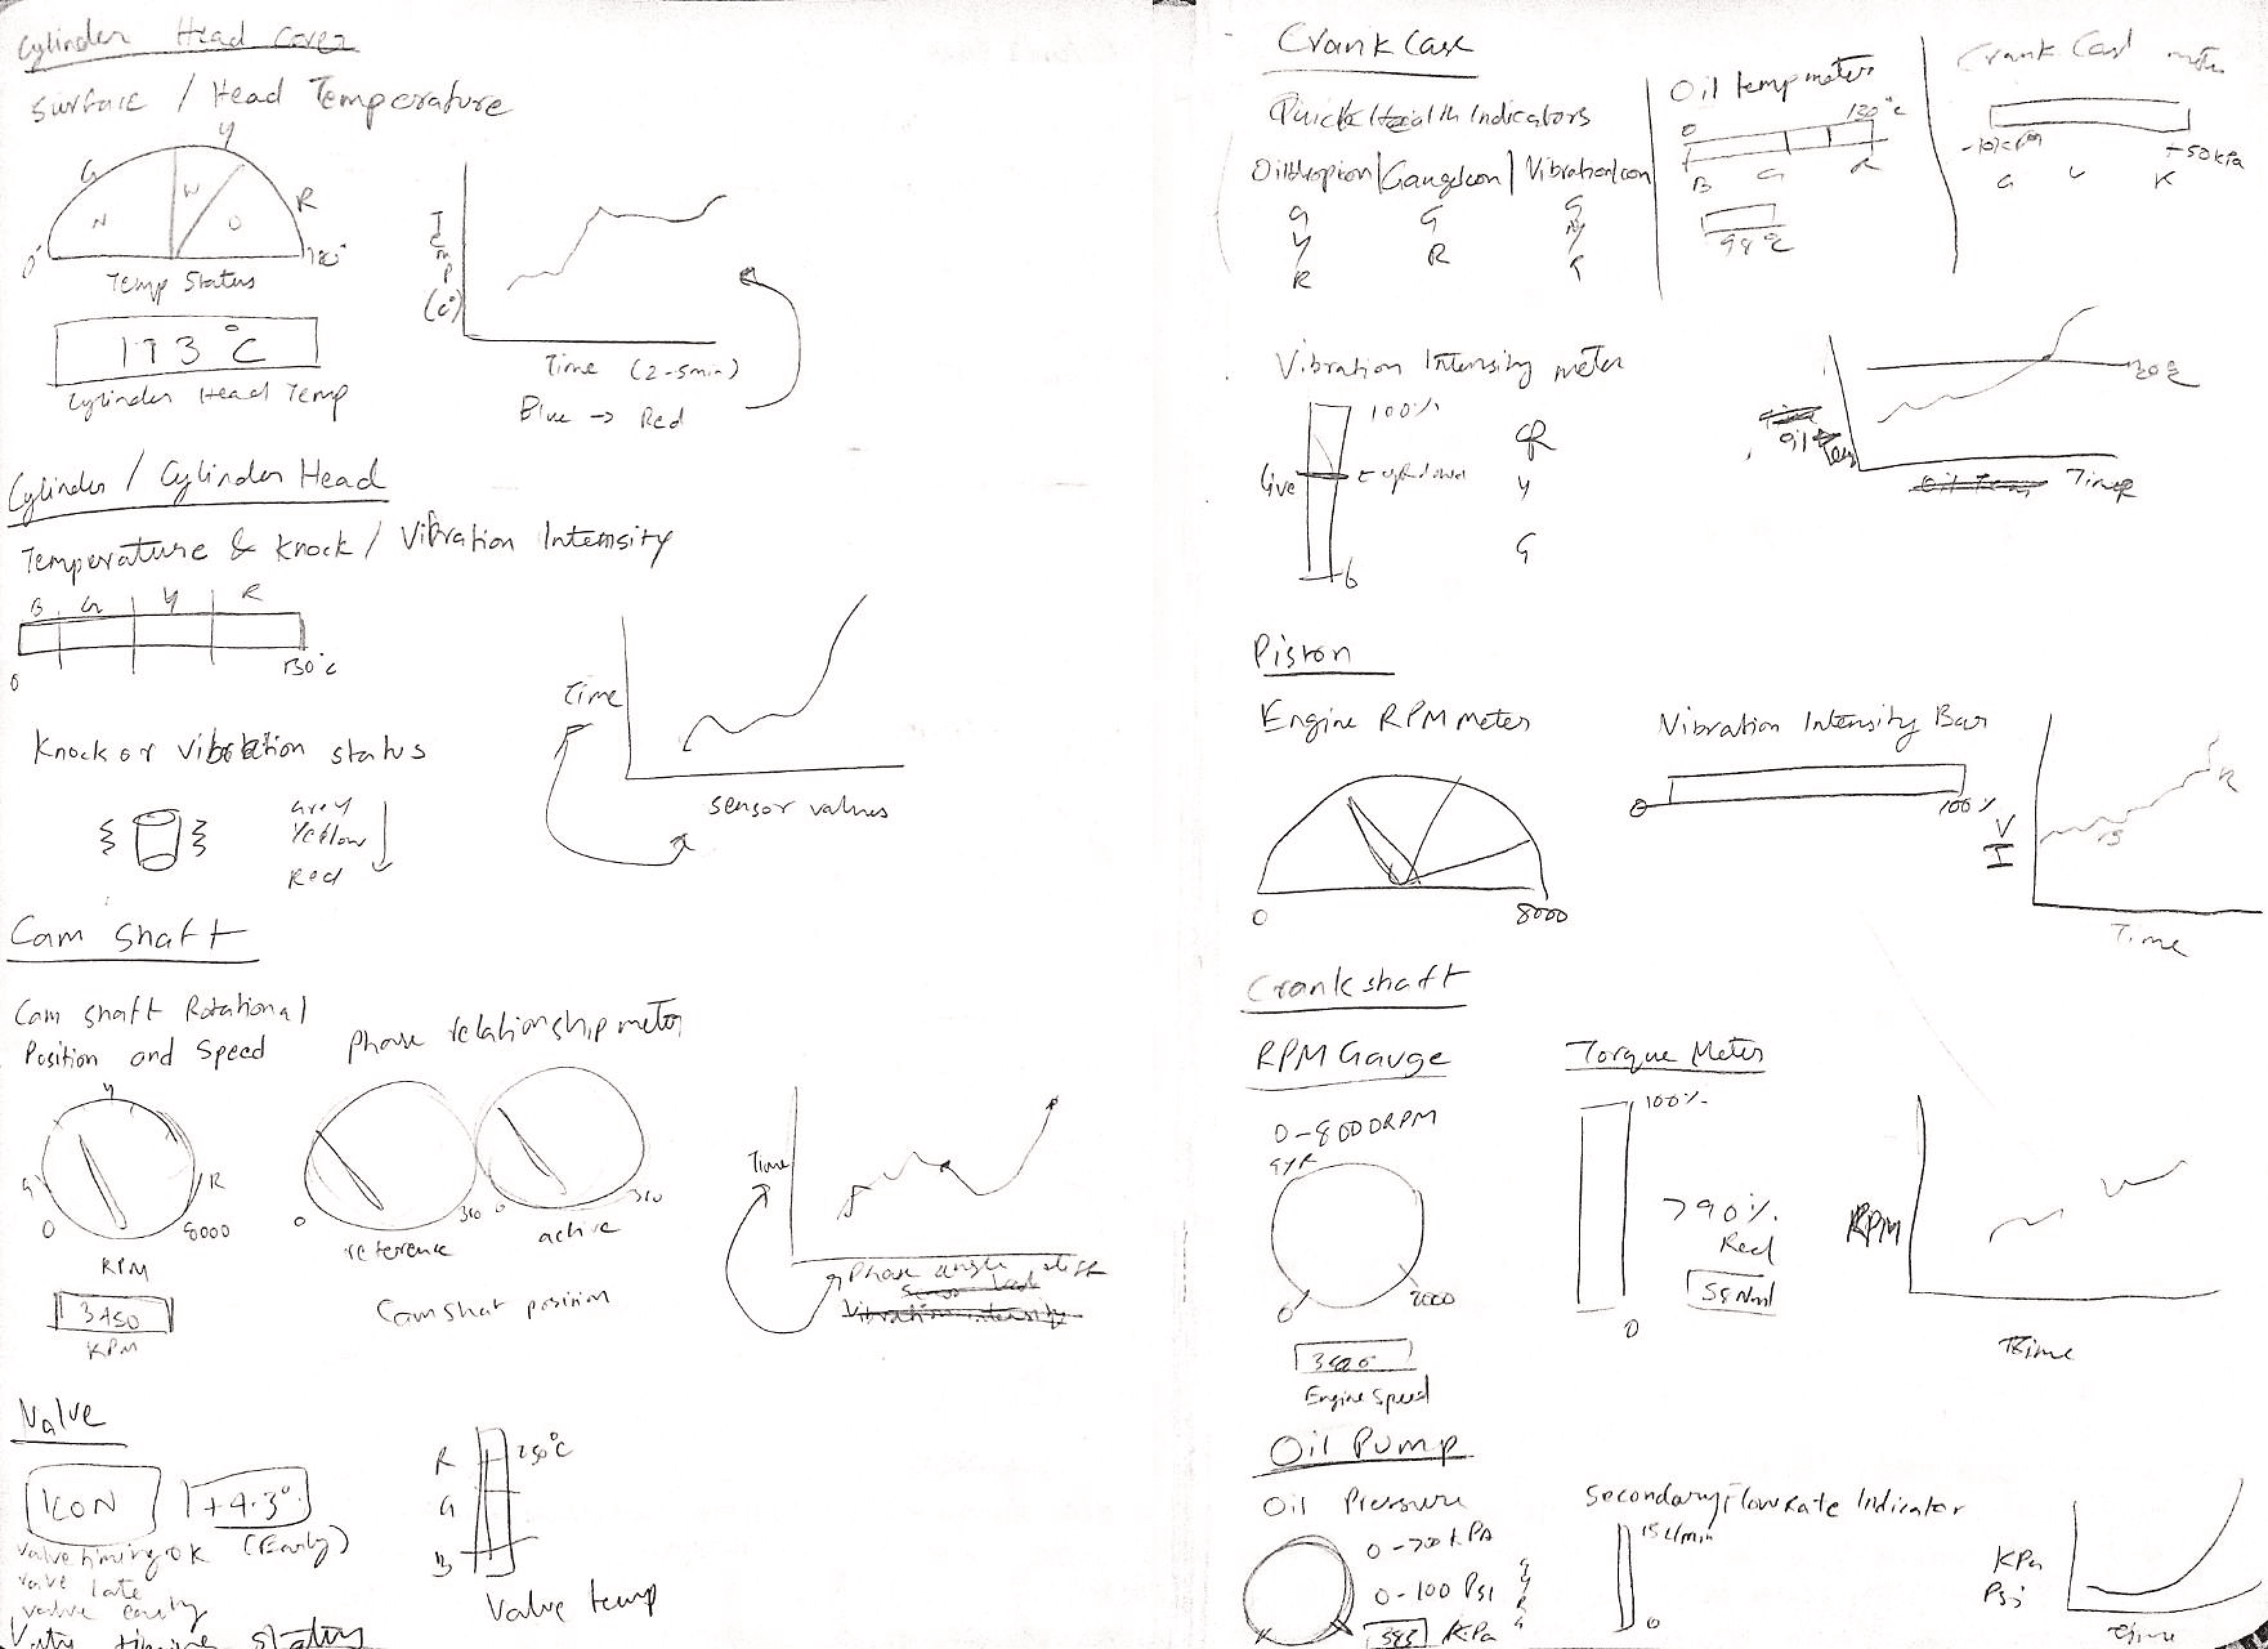 Cylinder Head Cover
Surface / Head Temperature
Y
G
W
R
N
O
0°
180°
Temp Status
Temp
(c°)
Time (2-5min)
Blue → Red
173°C
Cylinder Head Temp
Cylinder / Cylinder Head
Temperature & Knock / Vibration Intensity
B G Y R
0
130°c
Time
sensor values
Knock or vibration status
Grey
Yellow
Red
Cam shaft
Cam shaft Rotational
Position and Speed
Phase relationship meter
Y
G
R
0
8000
RPM
3450
RPM
0
360
reference
0
360
active
Camshaft position
Time
Phase angle
Vibration intensity
Valve
ICON
+4.3°
(Early)
Valve timing OK
valve late
valve early
Valve timing status
R
250°C
G
B
Valve temp
Crank Case
Quick Health Indicators
Vibration icon
G G G
Y R Y
R
Oil temp meter
0
130°c
B G R
98°C
Crank Case meter
-10kPa
+50kPa
Vibration Intensity meter
100%
live
R
Y
G
0
Oil Temp
Time
Piston
Engine RPM meter
0
8000
Vibration Intensity Bar
0
100%
V
I
R
Time
Crankshaft
RPM Gauge
0-8000RPM
GYR
0
Engine Speed
Torque Meter
100%
>90%
Red
0
RPM
Time
Oil Pump
Oil Pressure
0-700 kPa
0-100 Psi
KPa
Secondary Flow Rate Indicator
15L/min
0
KPa
Psi
Time